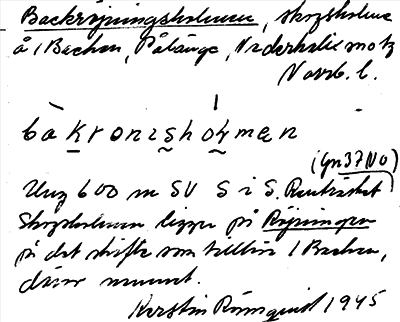 Backröjningsholmen, skogsholme
å 1 Backen, Pålänge, Nederkalix mot
Norrb. l.
bàkronɪsholmen
(Gn37No)
Ung 600 m SV S i S. Renträsket
Skogsholmen ligger på Röjningen
på det skifte som tillhör 1 Backen,
därav namnet.
Kerstin Rönnquist 1945